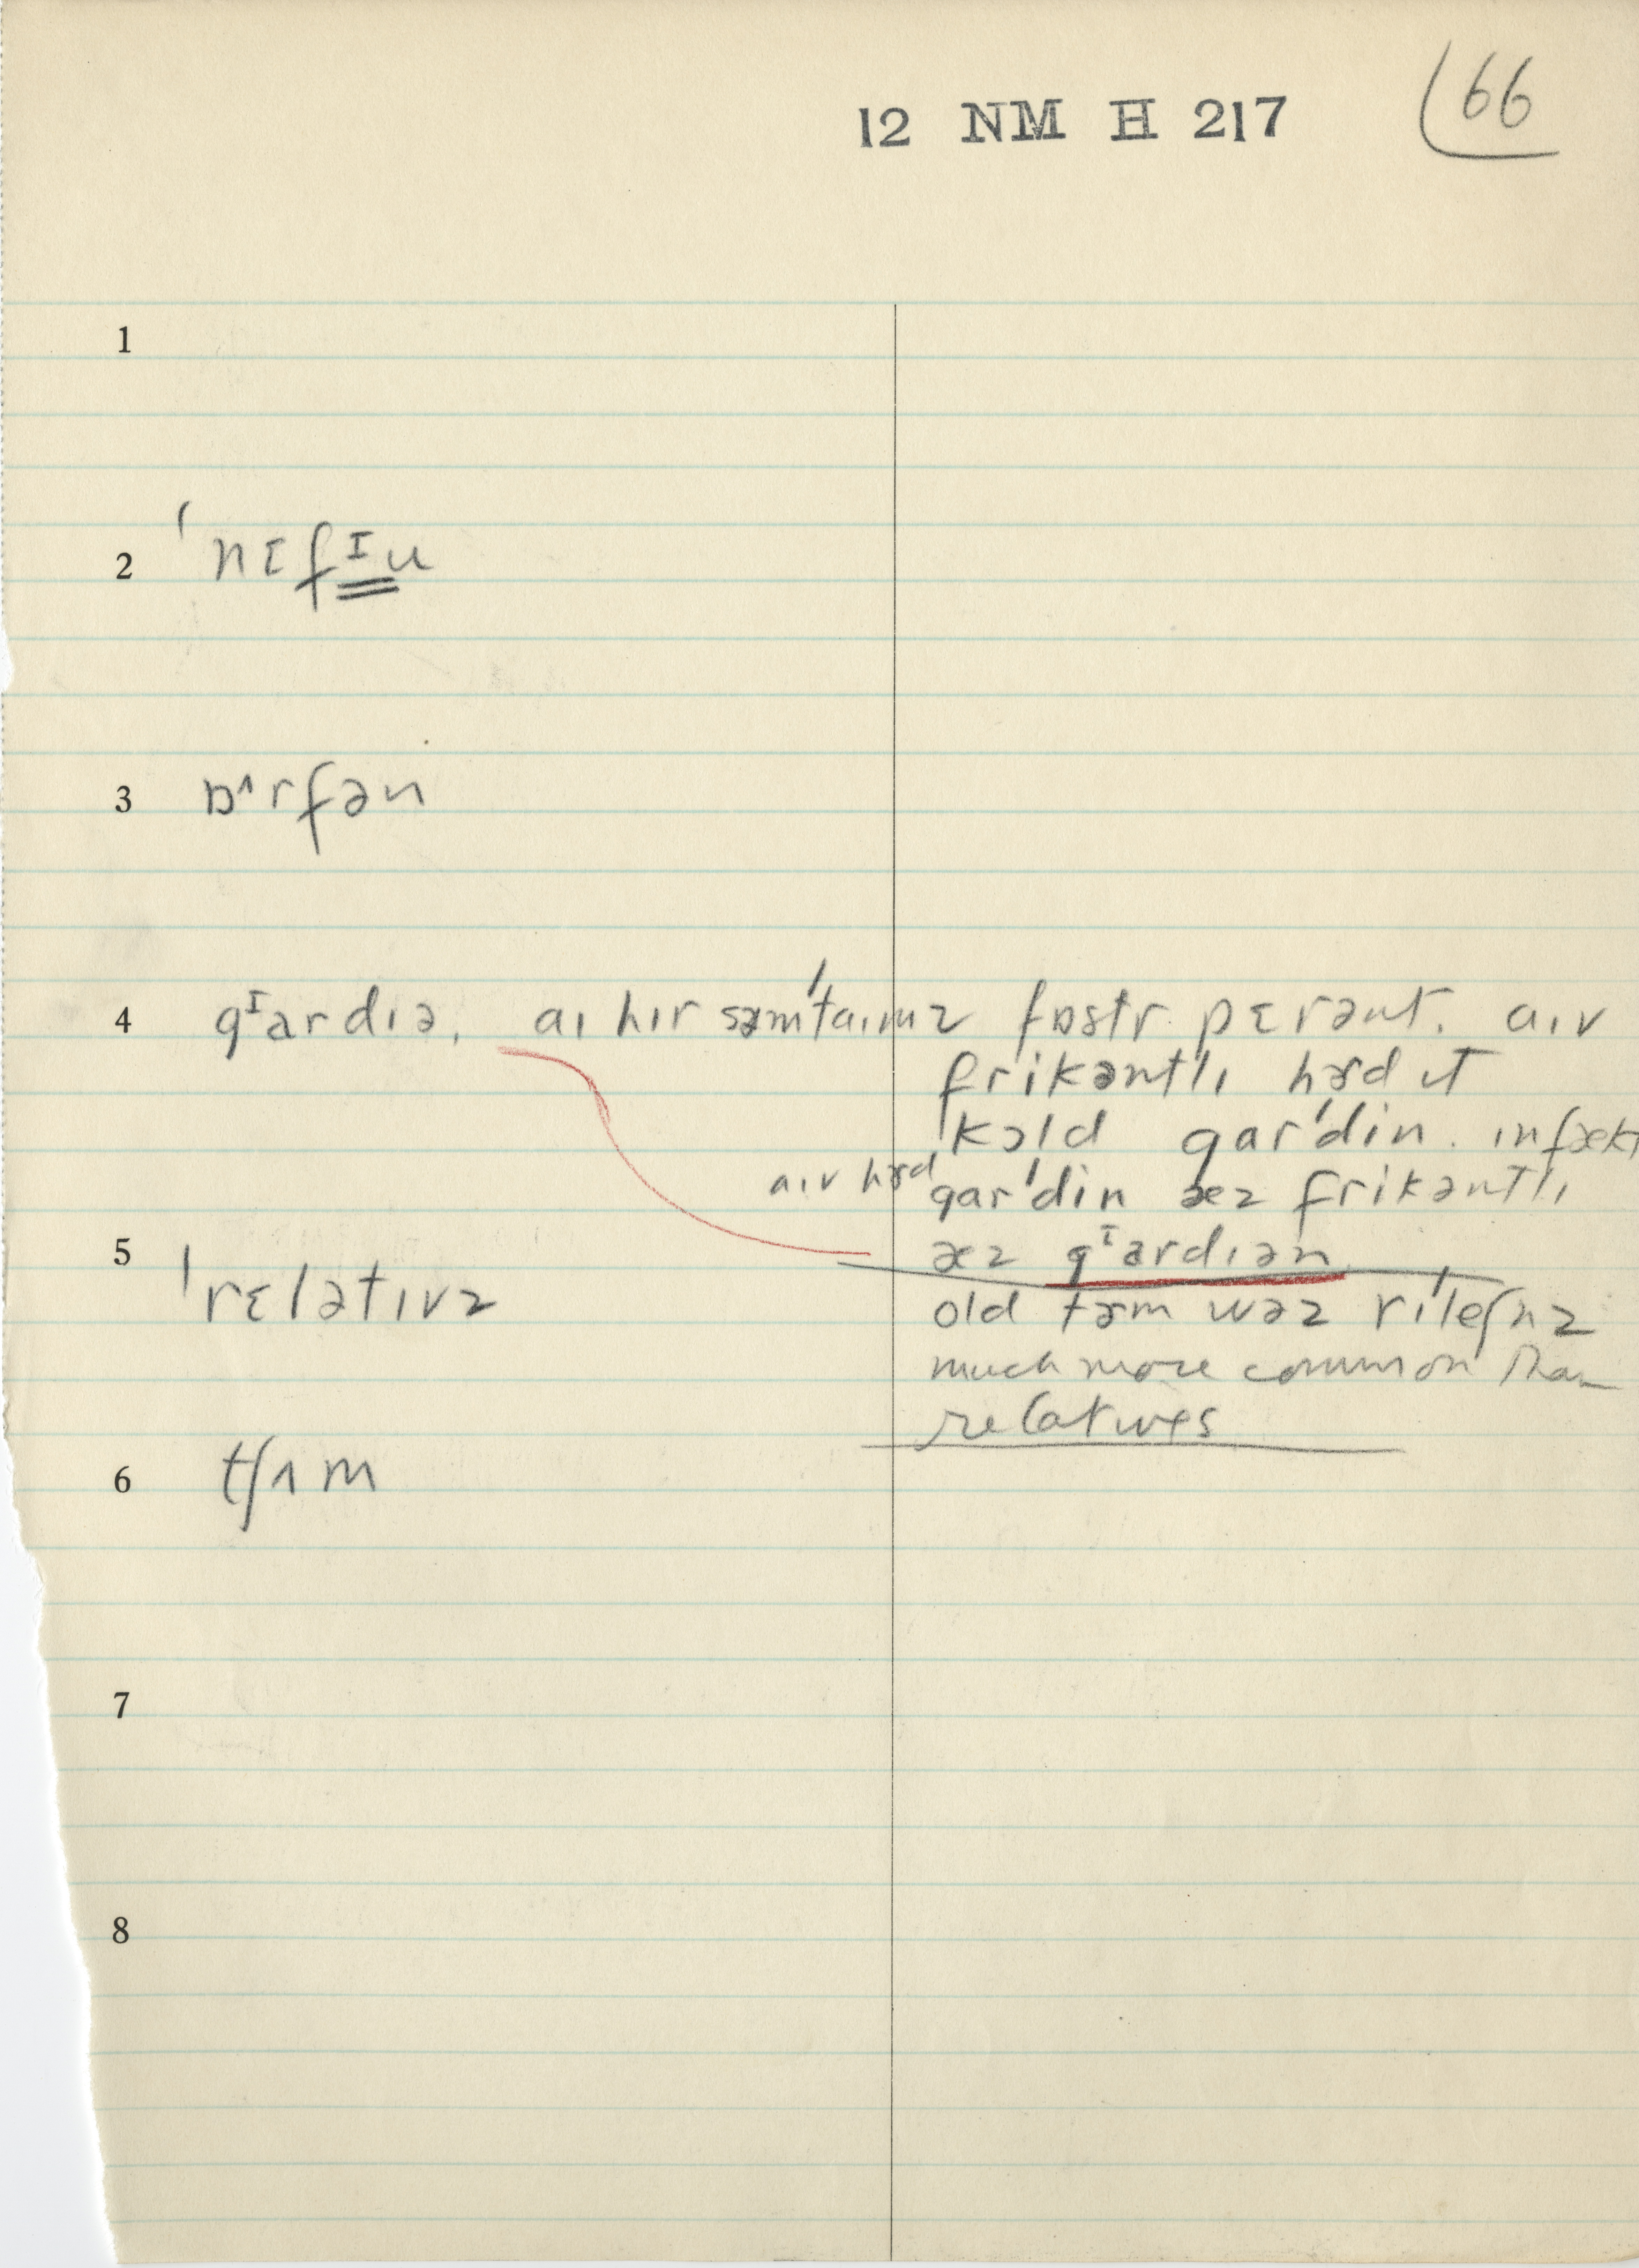 12 NM H 217 66
1
2 ˈnɛfᶦu
3 ɒ^rfən
4 gᶦardiə, aɪ hɪr səmˈtaɪmz fɒstr pɛrənt. aɪv
frikəntlɪ hɝd ɪt
kɔld garˈdin. ɪnfækt
aɪv hɝd garˈdin æz frikəntlɪ
æz gᶦardɪən
5 ˈrɛlətɪvz
old tɝm wəz rɪˈleʃnz
much more common than
relatives
6 tʃʌm
7
8